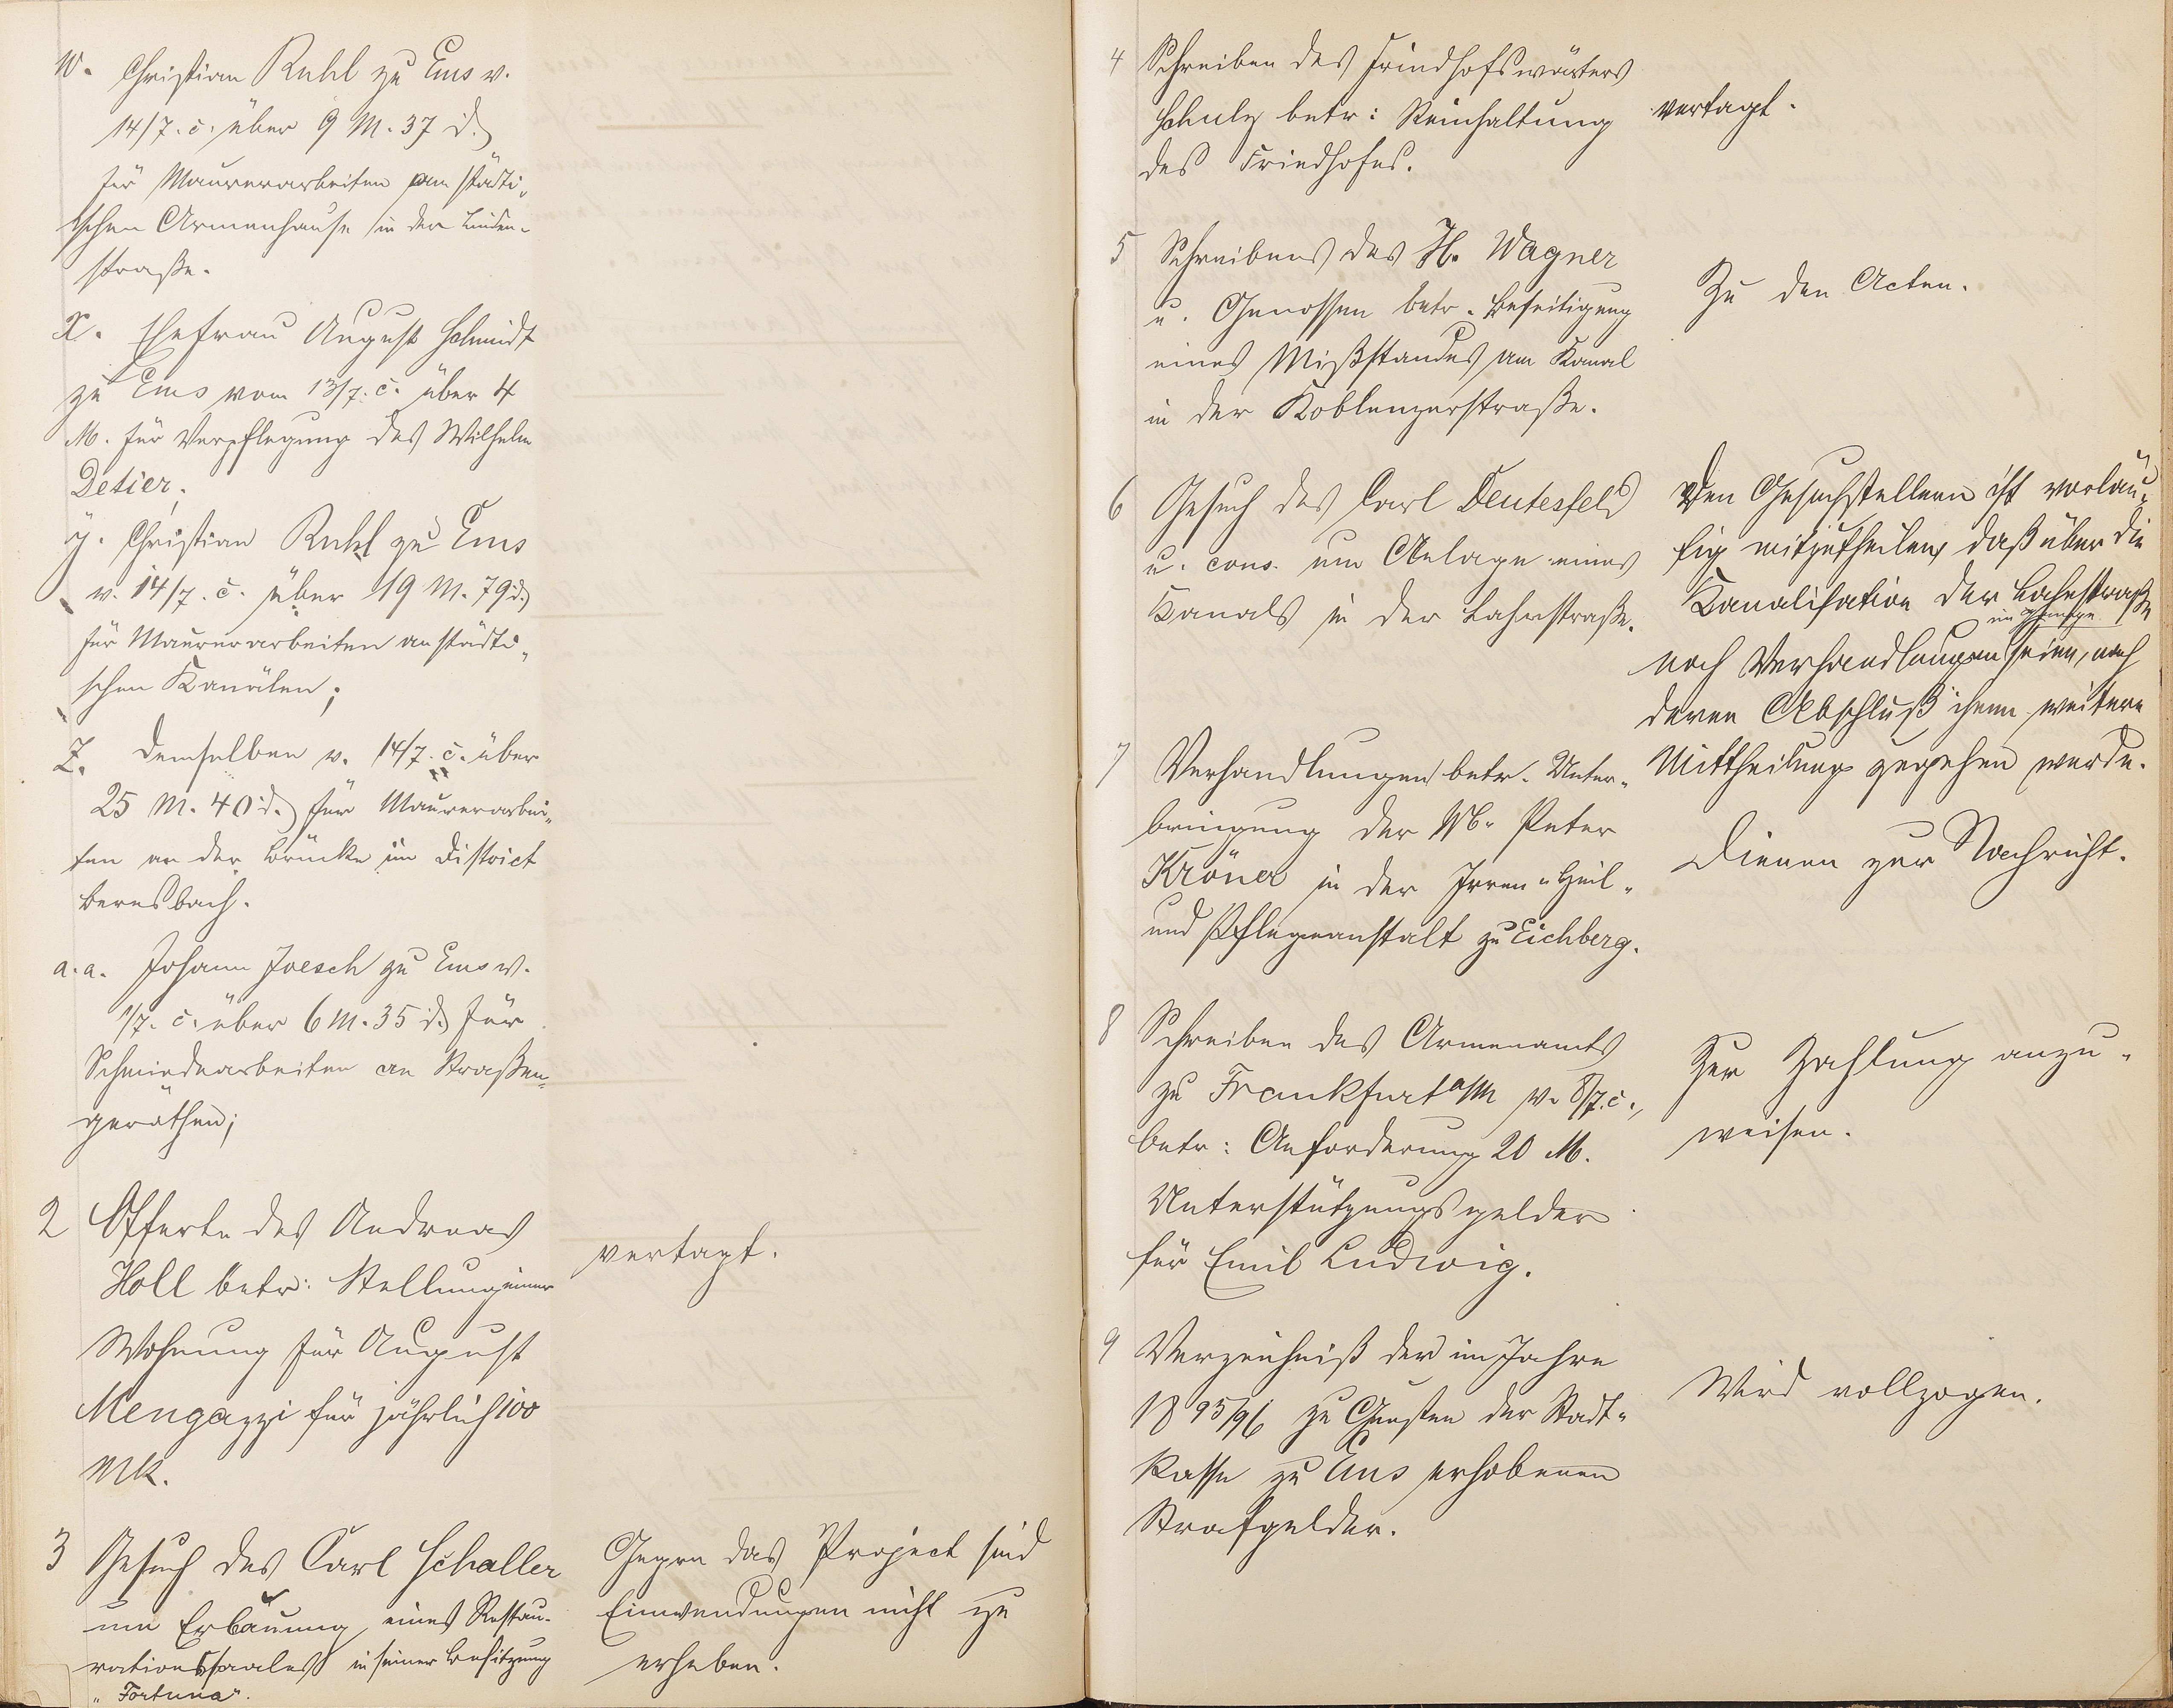 w. Christian Ruhl zu Ems v.
14/7. c. über 9 M. 37 d.
für Maurerarbeiten am städti-
schen Armenhause in der Linden-
straße.
x. Ehefrau August Schmidt
zu Ems vom 13/7. c. über 4
M. für Verpflegung des Wilhelm
Detier;
y. Christian Ruhl zu Ems
v. 14/7. c. über 19 M. 79 d.
für Maurerarbeiten an städti-
schen Kanälen;
z. demselben v. 14/7. c. über
25 M. 40 d. für Maurerarbei-
ten an der Brücke im District
Bernsbach.
a.a. Johann Joesch zu Ems v.
1/7. c. über 6 M. 35 d. für
Schmiedearbeiten an Straßen-
geräthen;
2 Offerte des Andreas
Holl betr: Stellung einer
Wohnung für August
Mengazzi für jährlich 100
Mk.
vertagt.
3 Gesuch des Carl Schaller
um Erbauung eines Restau-
rationssaales in seiner Besitzung
"Fortuna".
Gegen das Project sind
Einwendungen nicht zu
erheben.
4 Schreiben des Friedhofswärters
Schulz betr: Reinhaltung
des Friedhofes.
vertagt.
5 Schreibens des H. Wagner
u. Genossen betr. Beseitigung
eines Mißstandes am Kanal
in der Koblenzerstraße.
Zu den Acten.
6 Gesuch des Carl Deutesfeld
u. cons. um Anlage eines
Kanals in der Lahnstraße.
Den Gesuchstellern ist vorläu-
fig mitzutheilen, daß über die
Kanalisation der Lahnstraße
noch Verhandlungen im Gange seien, nach
deren Abschluß ihnen weitere
Mittheilung zugehen werde.
7 Verhandlungen betr. Unter-
bringung der W. Peter
Kröner in der Irren- Heil-
und Pflegeanstalt zu Eichberg.
Dienen zur Nachricht.
8 Schreiben des Armenamts
zu Frankfurt a/M v. 8/7. c.,
betr: Anforderung 20 M.
Unterstützungsgelder
für Emil Ludwig.
Zur Zahlung anzu-
weisen.
9 Verzeichniß der im Jahre
1895/96 zu Gunsten der Stadt-
kasse zu Ems erhobenen
Strafgelder.
Wird vollzogen.